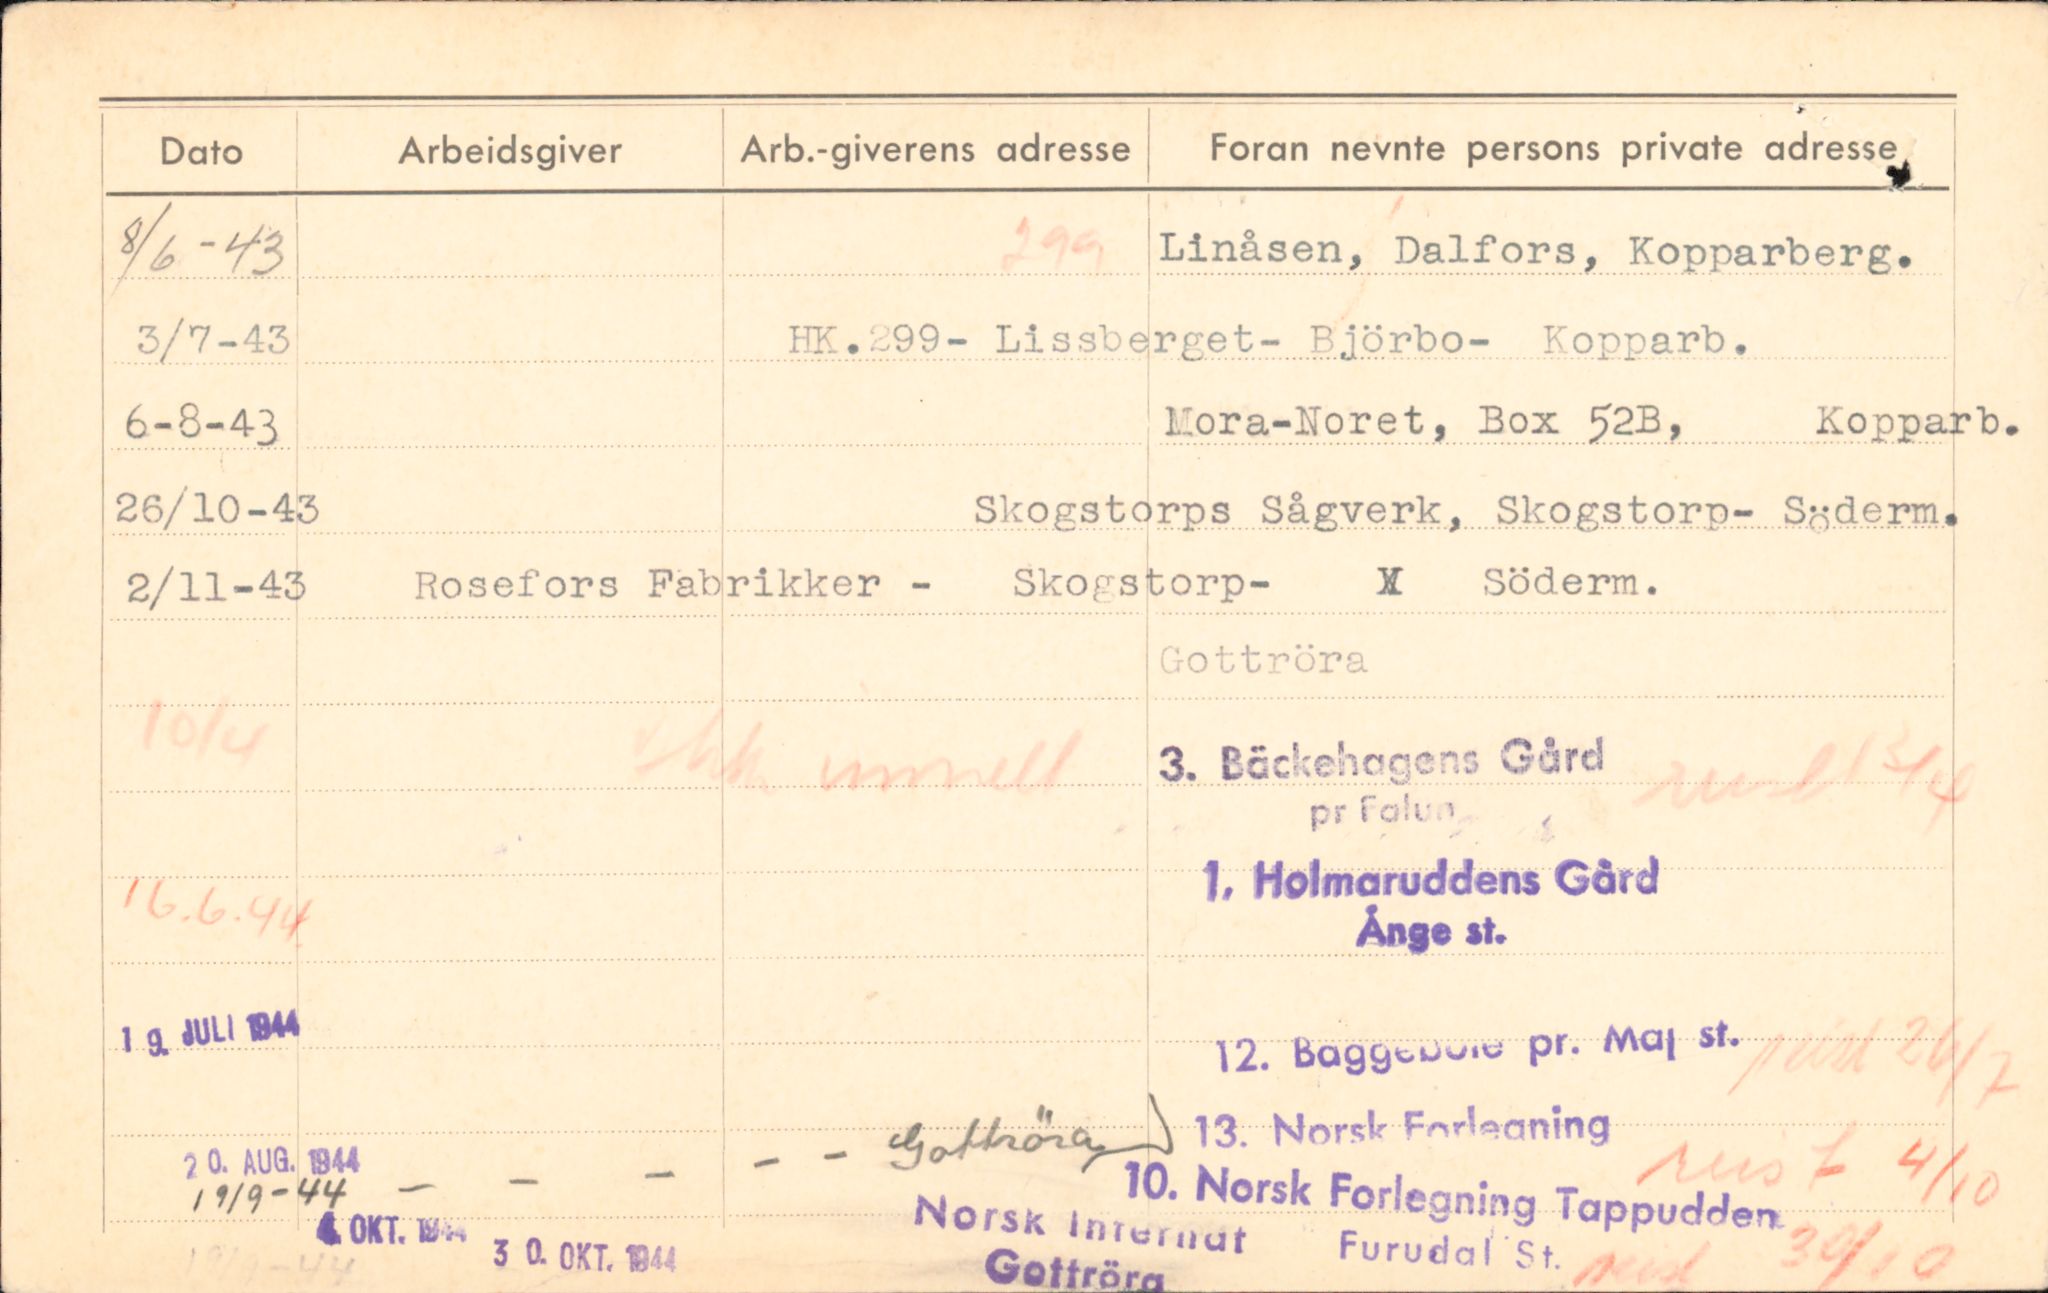 Dato Arbeidsgiver Arb.-giverens adresse Foran nevnte persons private adresse
8/6-43 299 Linåsen, Dalfors, Kopparberg.
3/7-43 HK.299- Lissberget- Björbo- Kopparb.
6-8-43 Mora-Noret, Box 52B, Kopparb.
26/10-43 Skogstorps Sågverk, Skogstorp- Söderm.
2/11-43 Rosefors Fabrikker - Skogstorp- Söderm.
Gottröra
10/4 3. Bäckehagens Gård 13/4
pr Falun
16.6.44 1. Holmaruddens Gård
Ånge st.
19. JULI 1944 12. Baggeböle pr. Maj st. reist 26/7
Gottröra 13. Norsk Forlegning
20. AUG. 1944 reist 4/10
19/9-44 - - - - - 10. Norsk Forlegning Tappudden
4 OKT. 1944 Norsk Internat Furudal St. reist 30/10
19/9-44 30. OKT. 1944 Gottröra